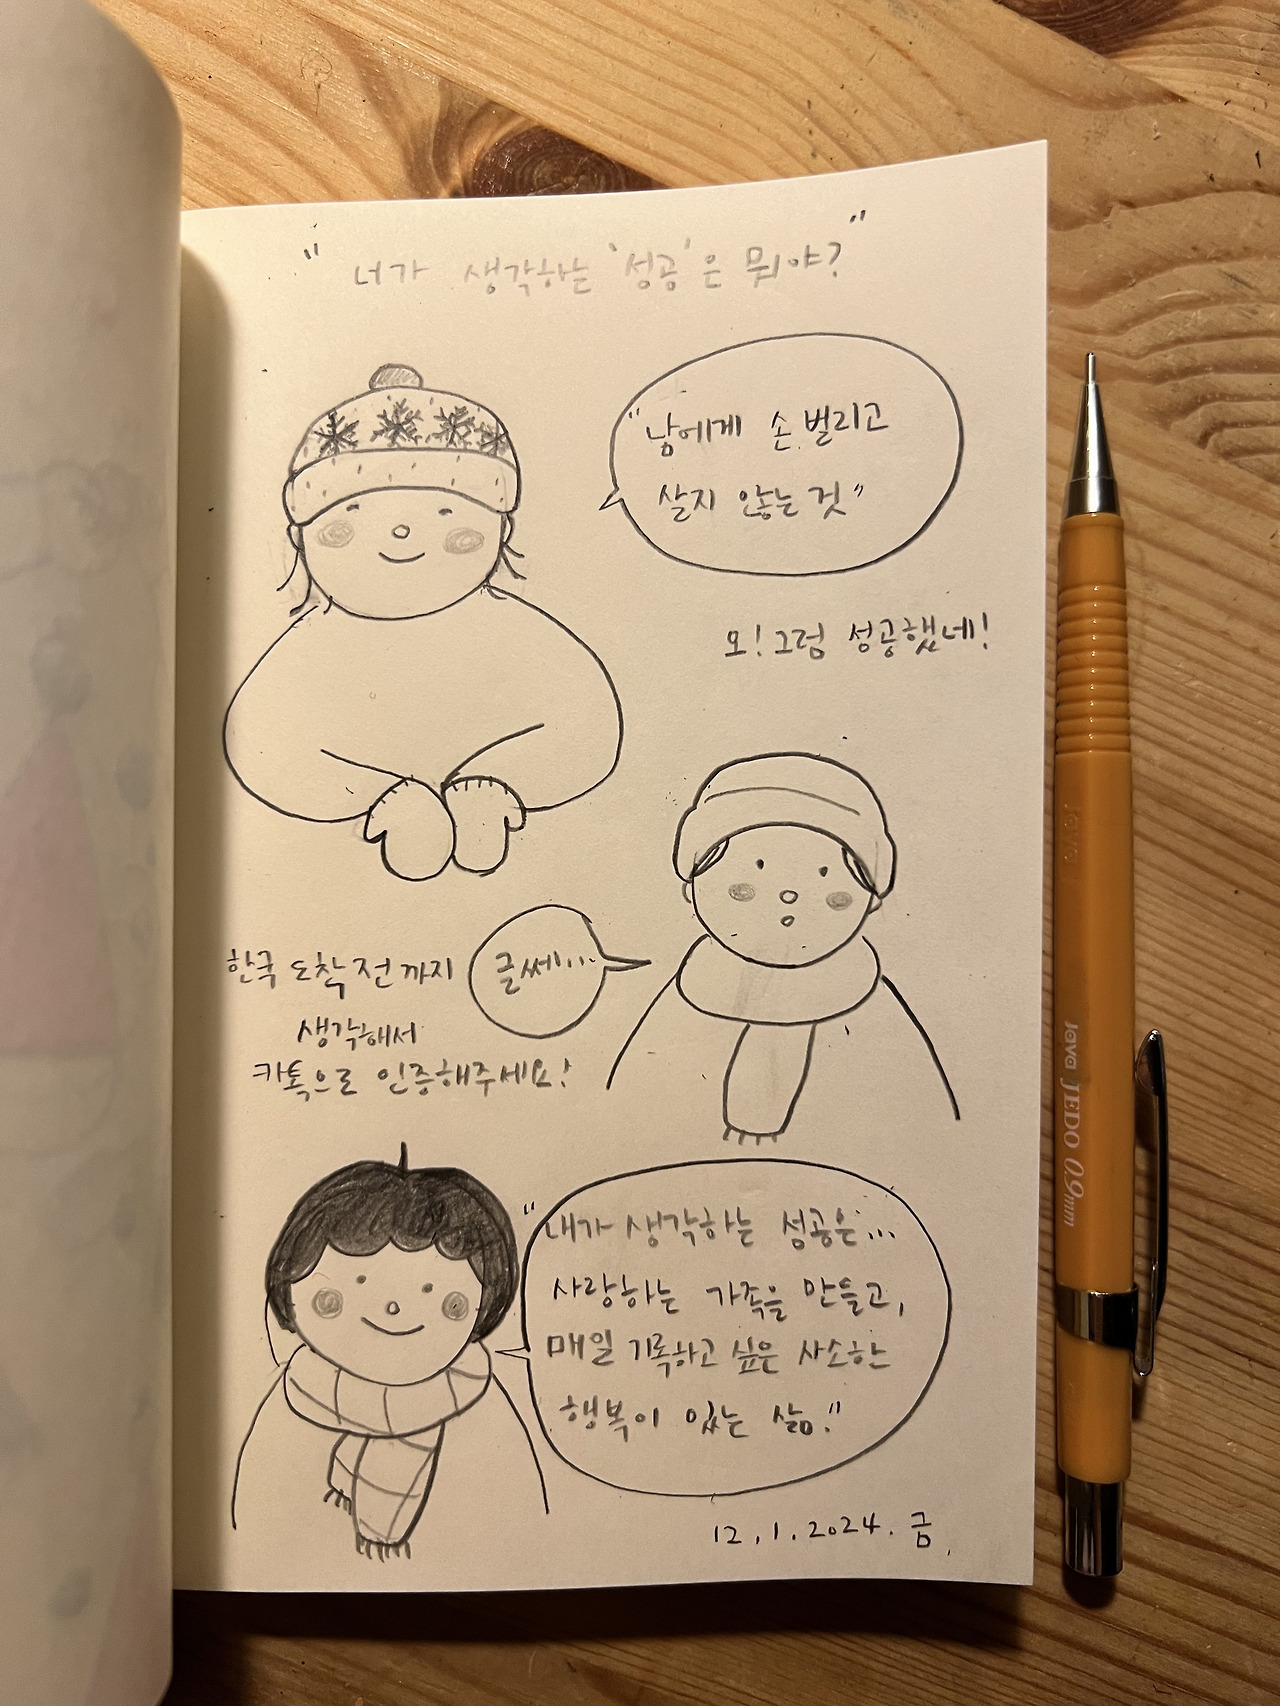 "너가 생각하는 '성공'은 뭐야?"
"남에게 손 벌리고
살지 않는 것"
오! 그럼 성공했네!
글쎄...
한국 도착 전까지
생각해서
카톡으로 인증해주세요!
"내가 생각하는 성공은...
사랑하는 가족을 만들고,
매일 기록하고 싶은 사소한
행복이 있는 삶."
12.1.2024. 금.
Java JEDO 0.9mm